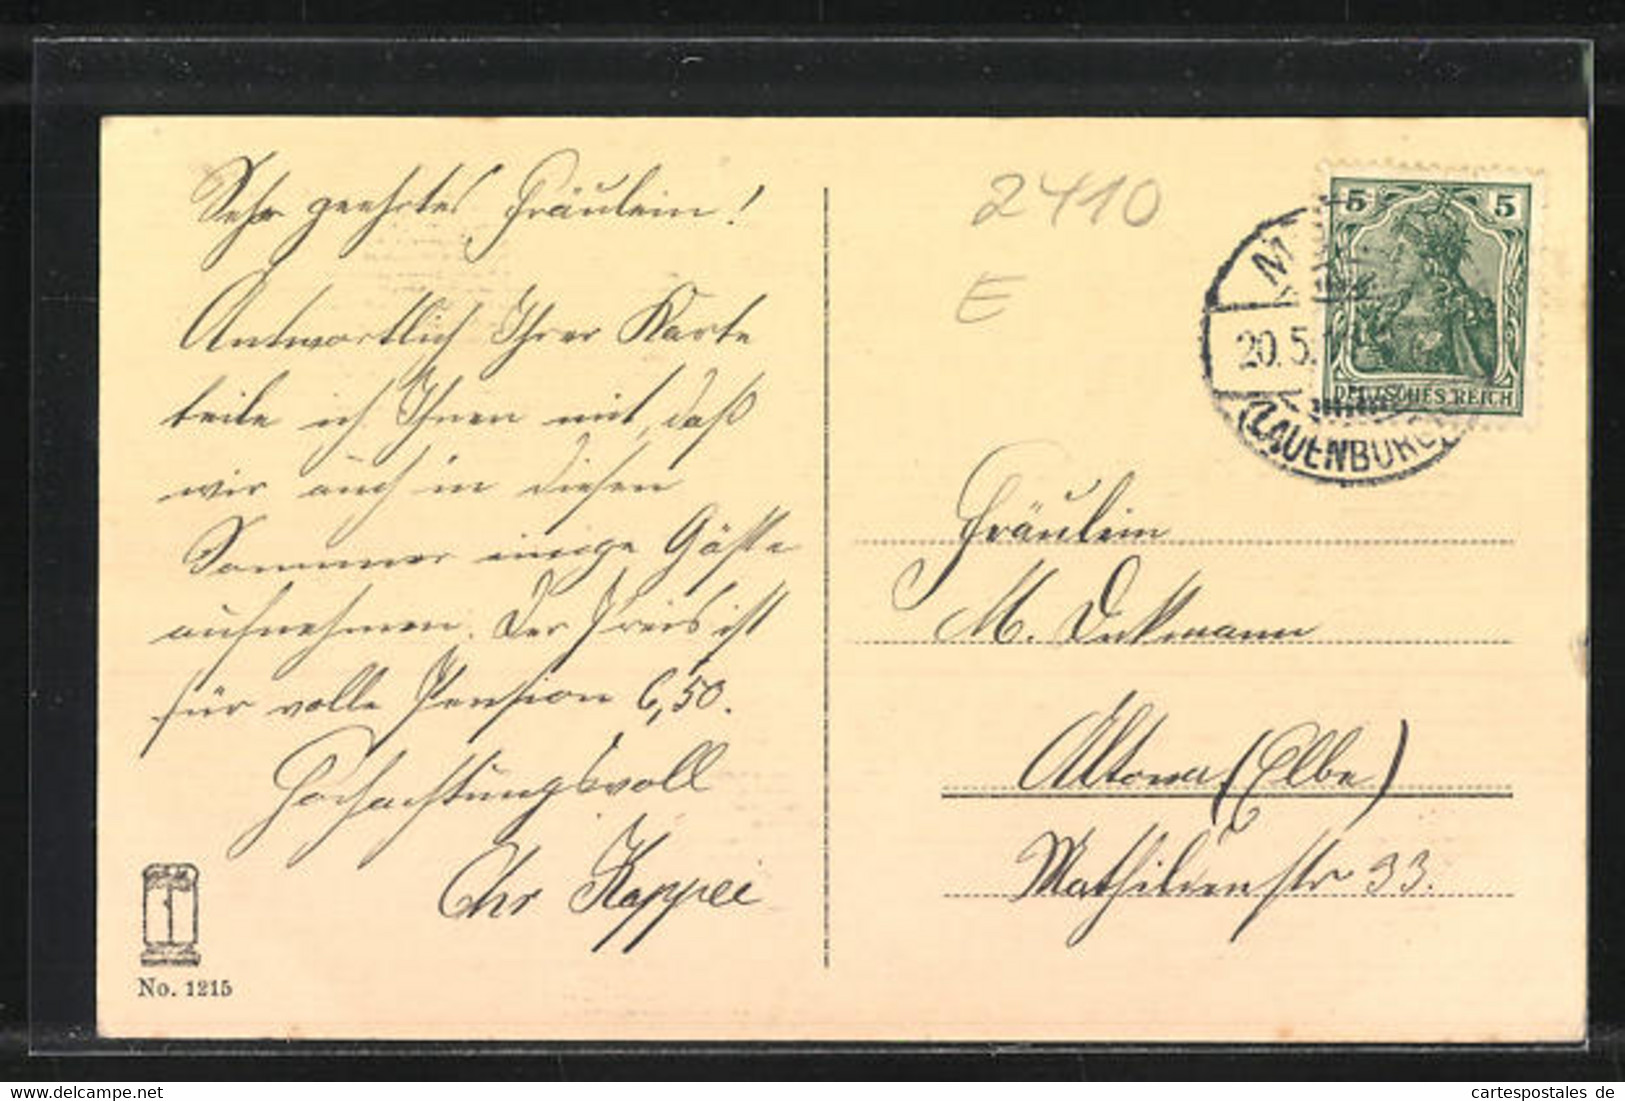 Sehr geehrtes Fräulein!
Antwortlich Ihrer Karte
teile ich Ihnen mit, daß
wir auch in diesen
Sommer einige Gäste
aufnehmen. Der Preis ist
für volle Pension 6,50.
Hochachtungsvoll
Chr Koppei
No. 1215
2410
E
5 5
DEUTSCHES REICH
M
20.5.1
(LAUENBURG)
Fräulein
M. Dekmann
Altona (Elbe)
Mathildenstr 33.
www.hippostcard.com
cartespostales de